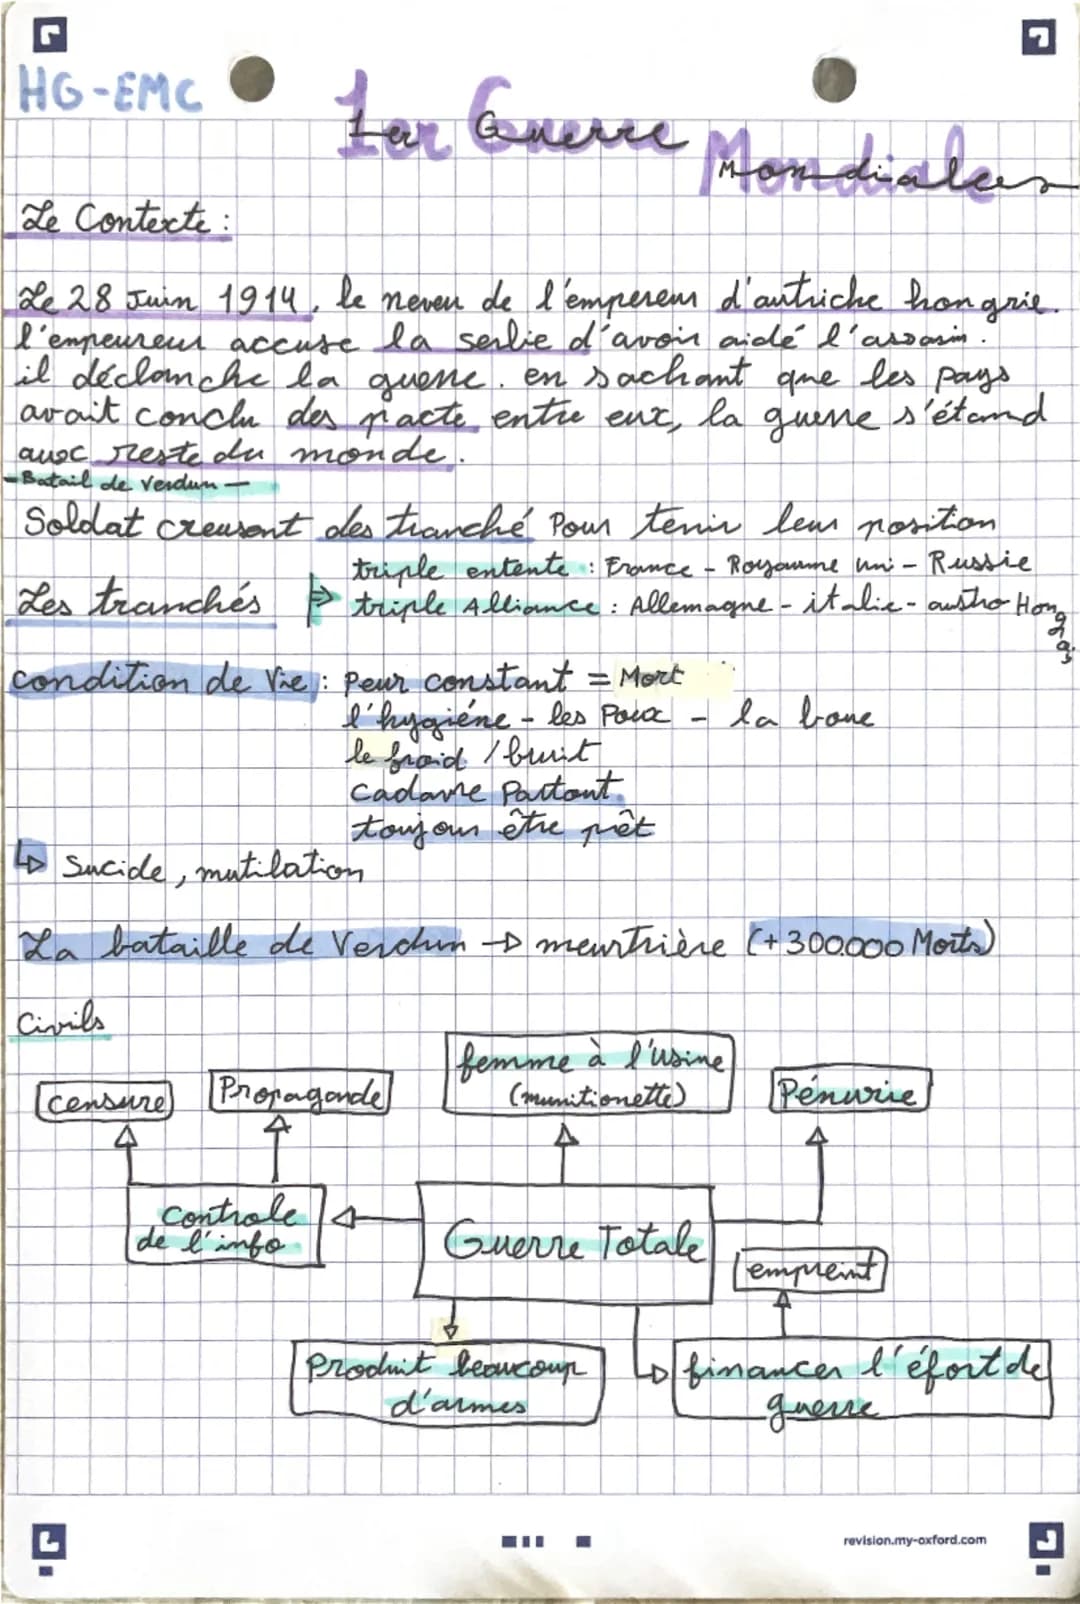 HG-EMC
1er Guerre Mondiales
Le Contexte :
Le 28 Juin 1914, le neveu de l'empereur d'autriche hongrie.
l'empeureur accuse la serbie d'avoir aidé l'assasin.
il déclanche la guerre. en sachant que les pays
avait conclu des pacte entre eux, la guerre s'étand
avec reste du monde.
- Batail de Verdun -
Soldat creusent des tranché Pour tenir leur position
triple entente : France - Royaume uni - Russie
Les tranchés
triple Alliance : Allemagne - italie - austro Hongas
condition de Vie : Peur constant = Mort
l'hygiéne - les Poux - la boue
le froid / bruit
Cadavre Partout.
toujours être prêt
Sucide, mutilation
La bataille de Verdun → meurtrière (+300.000 Morts)
Civils
femme à l'usine
(munitionette)
censure
Propagande
Pénurie
controle
de l'info
Guerre Totale
empreint
Produit beaucoup
d'armes
financer l'éfort de
guerre
revision.my-oxford.com